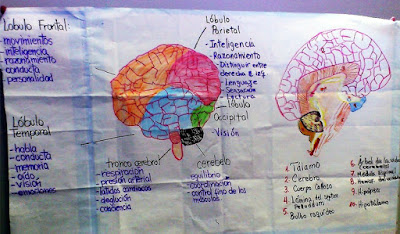 Lóbulo Frontal:
- movimientos
- inteligencia
- razonamiento
- conducta
- personalidad
Lóbulo
Temporal
- habla
- conducta
- memoria
- oido
- Visión
- emociones
Lóbulo
Parietal
- Inteligencia
- Razonamiento
- Distinguir entre
derecho e izq.
- Lenguaje
- Sensación
- Lectura
Lóbulo
Occipital
- Visión
tronco cerebral
- respiración
- presión arterial
- latidos cardiacos
- deglución
- conciencia
cerebelo
- equilibrio
- coordinación
- control fino de los
músculos
1. Tálamo
2. Cerebro
3. Cuerpo Calloso
4. Lámina del septum
Pellucidum
5. Bulbo raquídeo
6. Árbol de la vida
7. Médula
9. Hipófisis
10. Hipotálamo